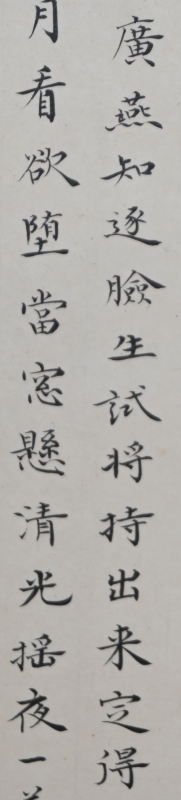 廣燕知逐臉生試将持出来定得
月看欲墮當窓懸清光揺夜一